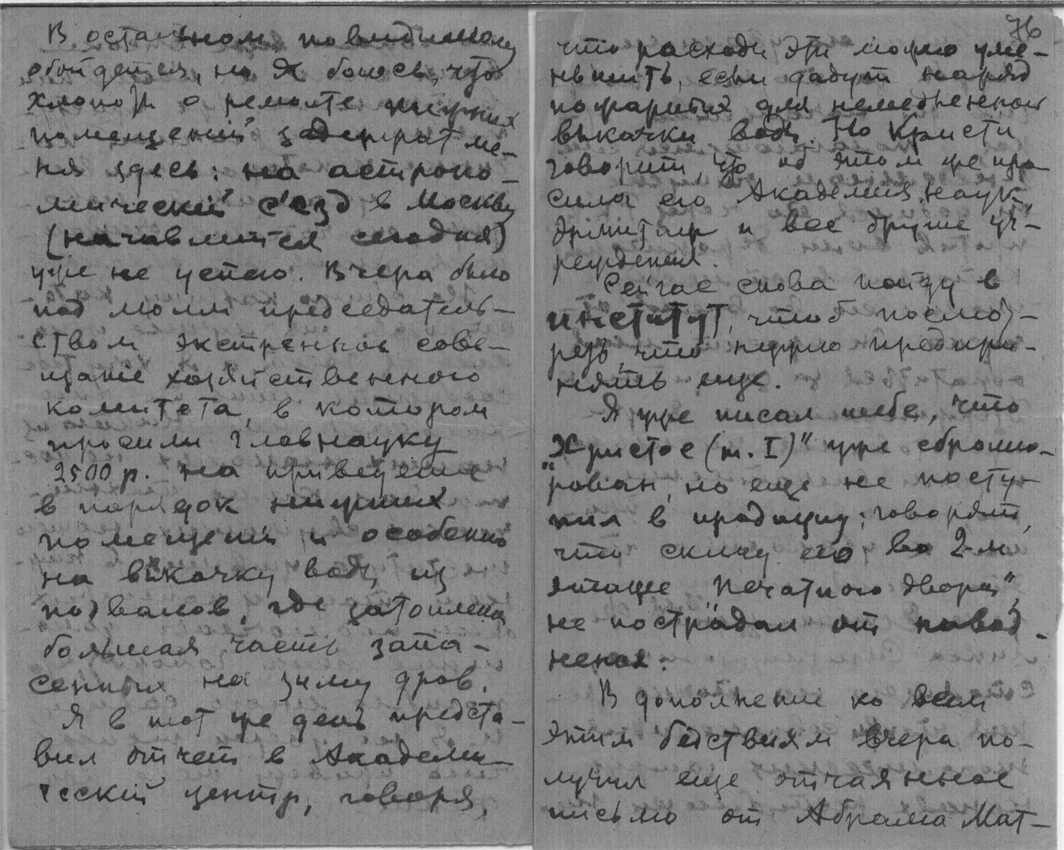 В остальном, повидимому
обойдется, но я боюсь, что
хлопоты о ремонте нижних
помещений задержат ме-
ня здесь: на астроно-
мический съезд в Москву
(начавшийся сегодня)
уже не успею. Вчера было
под моим председатель-
ством экстренное сове-
щание хозяйственного
комитета, в котором
просили Главнауку
2500 р. на приведение
в порядок нижних
помещений и особенно
на выкачку воды из
подвалов, где затоплена
большая часть запа-
сенных на зиму дров.
Я в тот же день предста-
вил отчет в Академи-
ческий центр, говоря,
76
что расходы эти можно уме-
ньшить, если дадут наряд
пожарных для немедленной
выкачки воды. Но Кристи
говорит, что об этом уже про
сила его Академия наук,
Эрмитаж и все другие уч-
реждения.
Сейчас снова пойду в
институт, чтоб посмот-
реть, что нужно предпри-
нять еще.
Я уже писал тебе, что
"Христос (т. I)" уже сброшю-
рован, но еще не посту-
пил в продажу; говорят,
что склад его во 2-м
этаже "Печатного двора",
не пострадал от навод-
нения.
В дополнение ко всем
этим бедствиям вчера по-
лучил еще отчаянное
письмо от Абрама Мат-